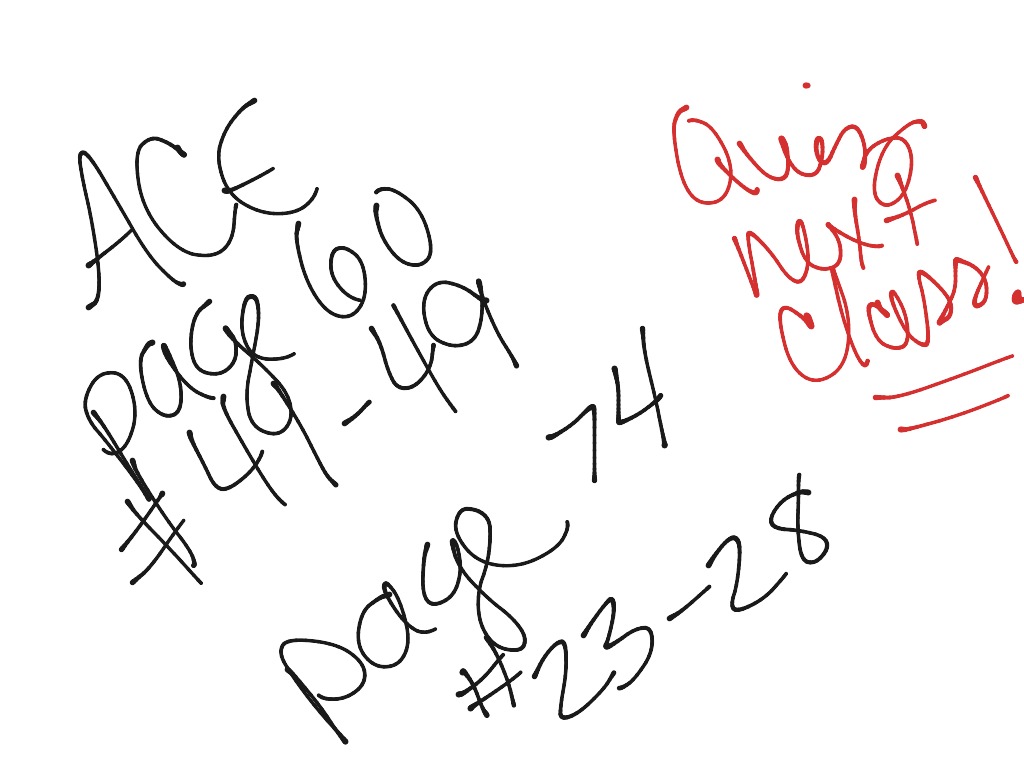 ACE
page 60
#41-49
page 74
#23-28
Quiz
next
class!